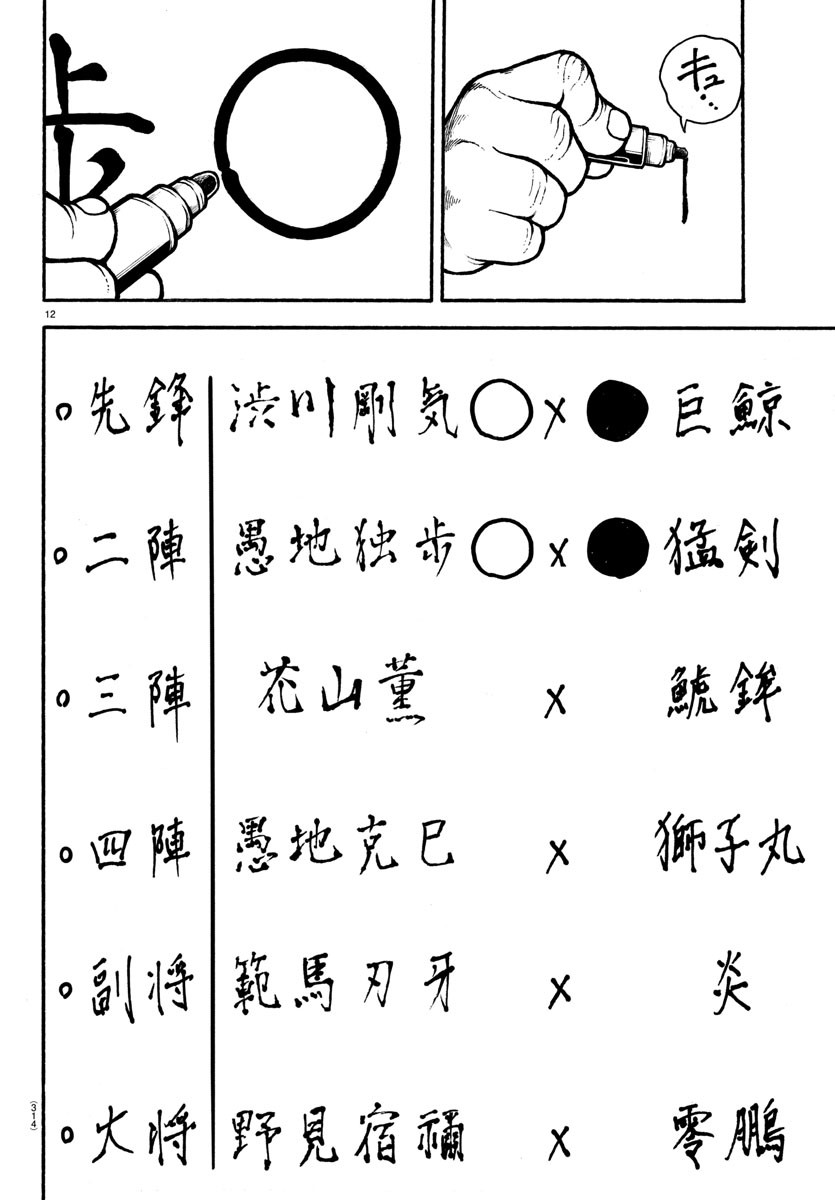 キュ…
歩○
12
○先鋒 渋川剛気○×●巨鯨
○二陣 愚地独歩○×●猛剣
○三陣 花山薫 × 鯱鉾
○四陣 愚地克巳 × 獅子丸
○副将 範馬刃牙 × 炎
○大将 野見宿禰 × 零鵬
(314)